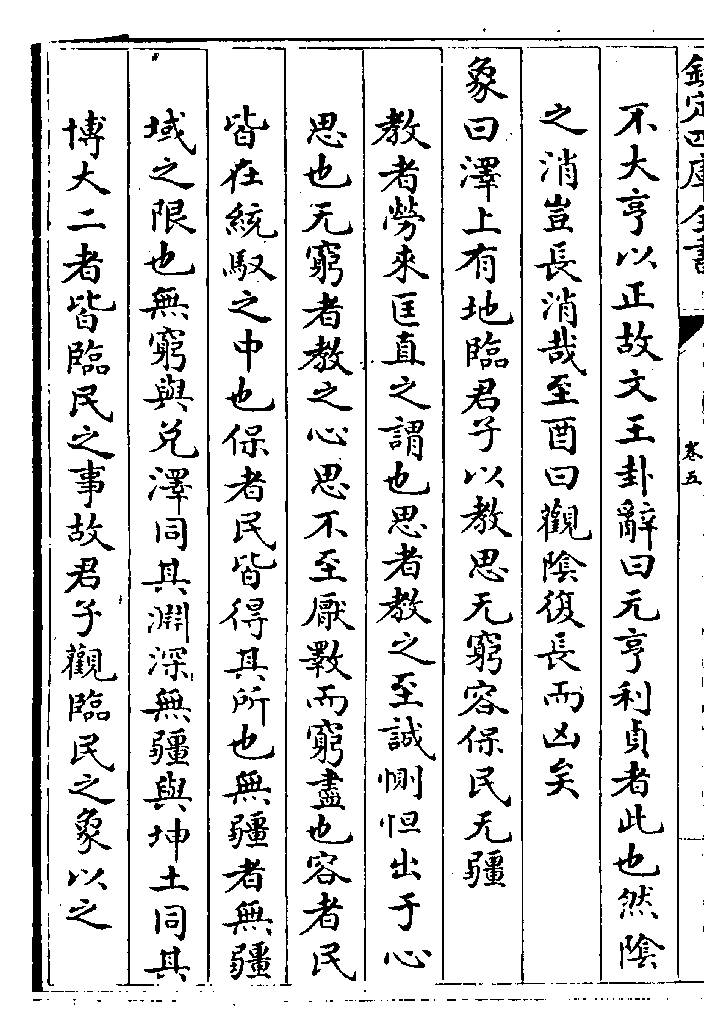 欽定四庫全書
卷五
不大亨以正故文王卦辭曰元亨利貞者此也然陰
之消豈長消哉至酉曰觀陰復長而凶矣
象曰澤上有地臨君子以教思无窮容保民无疆
教者勞來匡直之謂也思者教之至誠惻怛出于心
思也无窮者教之心思不至厭斁而窮盡也容者民
皆在統馭之中也保者民皆得其所也無疆者無疆
域之限也無窮與兌澤同其淵深無疆與坤土同其
博大二者皆臨民之事故君子觀臨民之象以之